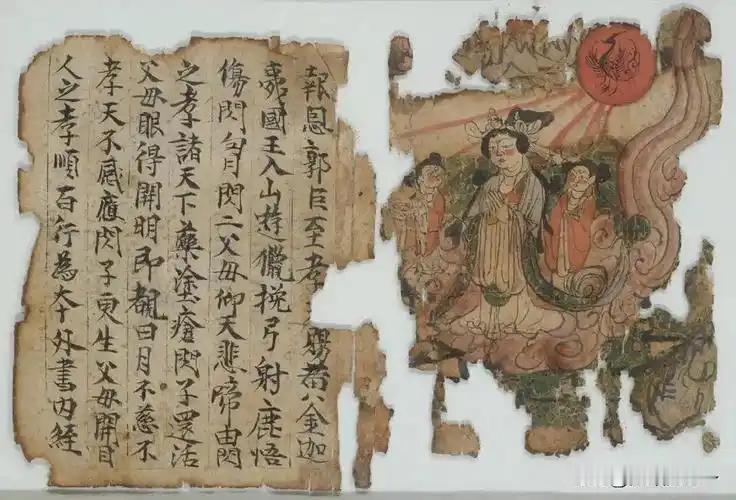 報恩郭巨至孝賜黃金迦
夷國王入山獵挽弓射鹿悟
傷閃匈閃二父母仰天悲啼由閃
之孝諸天下藥塗瘡閃子還活
父母眼得開明即覩日月不慈不
孝天不感應閃子更生父母開目
人之孝順百行為本外書内經